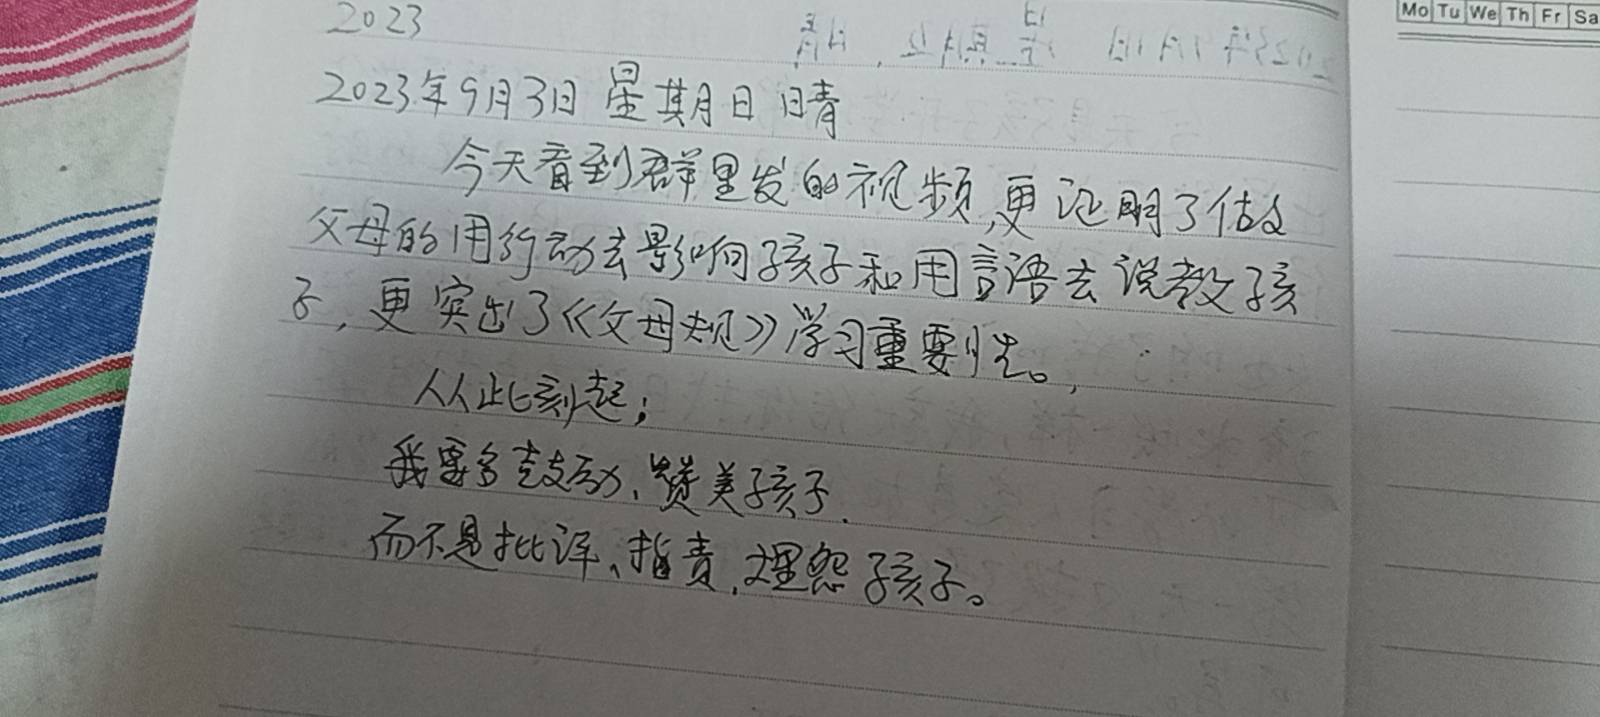 2023
Mo Tu We Th Fr Sa
2023年9月3日 星期日 晴
今天看到群里发的视频,更证明了做
父母的用行动去影响孩子和用言语去说教孩
子,更突出了《父母规》学习重要性。
从此刻起;
我要多鼓励、赞美孩子.
而不是批评、指责,埋怨孩子。